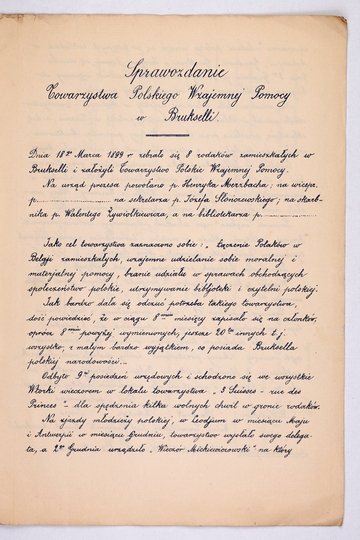 Sprawozdanie
Towarzystwa Polskiego Wzajemnej Pomocy
w Brukselli.
Dnia 18go Marca 1899 r. zebrało się 8 rodaków zamieszkałych w
Brukselli i założyli Towarzystwo Polskie Wzajemnej Pomocy.
Na urząd prezesa powołano p. Henryka Merzbacha; na wicepr.
p. .................. na sekretarza p. Józefa Słonczewskiego; na skarb-
nika p. Walentego Żywiołkiewicza, a na bibliotekarza p. ..................
Jako cel towarzystwa zaznaczono sobie: „Łączenie Polaków w
Belgji zamieszkałych, wzajemne udzielanie sobie moralnej i
materjalnej pomocy, branie udziału w sprawach obchodzących
społeczeństwo polskie, utrzymywanie biblioteki i czytelni polskiej.
Jak bardzo dała się odczuć potrzeba takiego towarzystwa,
dość powiedzieć, że w ciągu 8miu miesięcy zapisało się na członków,
oprócz 8miu powyżej wymienionych, jeszcze 20tu innych t. j.
wszystko, z małym bardzo wyjątkiem, co posiada Bruksella
polskiej narodowości.
Odbyto 9ć posiedzeń urzędowych i schodzono się we wszystkie
Wtorki wieczorem w lokalu towarzystwa „3 Suisses - rue des
Princes" - dla spędzenia kilka wolnych chwil w gronie rodaków.
Na zjazdy młodzieży polskiej, w Leodjum w miesiącu Maju
i Antwerpii w miesiącu Grudniu, towarzystwo wysłało swego delega-
ta, a 2go Grudnia urządziło „Wieczór Mickiewiczowski" na który